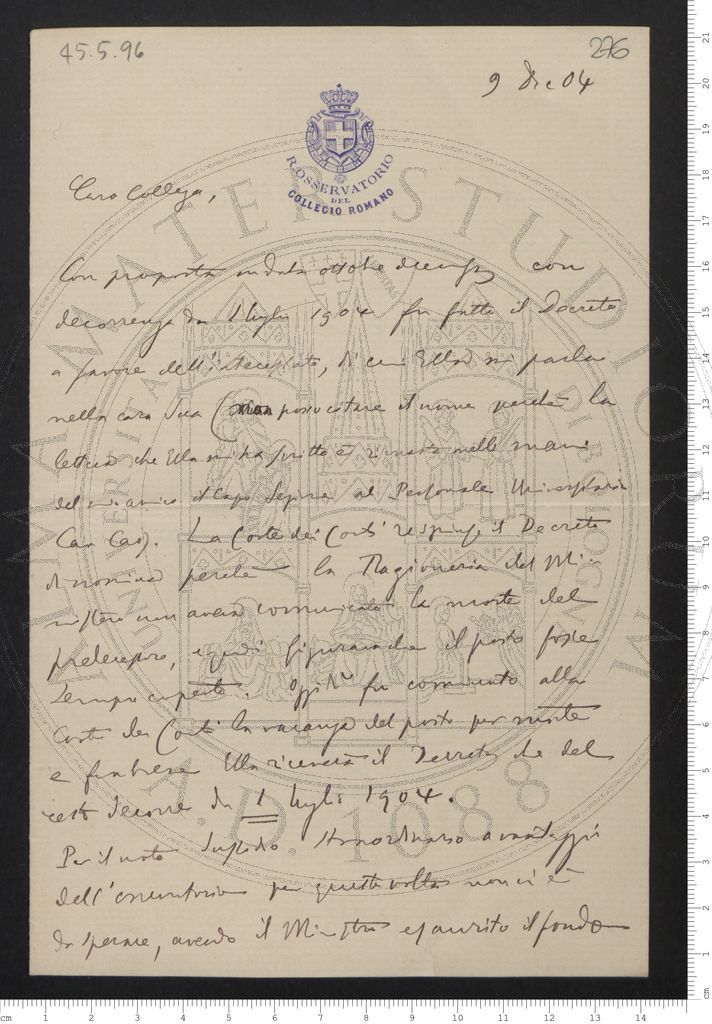 45.5.96
276
9 Dic 04
R. OSSERVATORIO
DEL
COLLEGIO ROMANO
Caro Collega,
Con proposta in data ottobre con
decorrenza da 1 luglio 1904 fu fatto il Decreto
a favore dell'interessato, di cui Ella mi parla
nella cara Sua (non posso citare il nome perché la
lettera che Ella mi ha scritto è rimasta nelle mani
del mio amico il Capo Sezione al Personale Universitario
Cav. ). La Corte dei Conti respinse il Decreto
di nomina perché la Ragioneria del Mi-
nistero non aveva comunicato la morte del
predecessore, e quindi figurava che il posto fosse
sempre coperto. Oggi fu comunicato alla
Corte dei Conti la vacanza del posto per morte
e Ella riceverà il Decreto che del
resto decorre da 1 luglio 1904.
Per il noto sussidio straordinario a vantaggio
dell'osservatorio per questa volta non vi è
da sperare, avendo il Ministro esaurito il fondo
ALMA MATER STUDIORUM
A.D. 1088
cm 1 2 3 4 5 6 7 8 9 10 11 12 13 14
21
20
19
18
17
16
15
14
13
12
11
10
9
8
7
6
5
4
3
2
1
cm